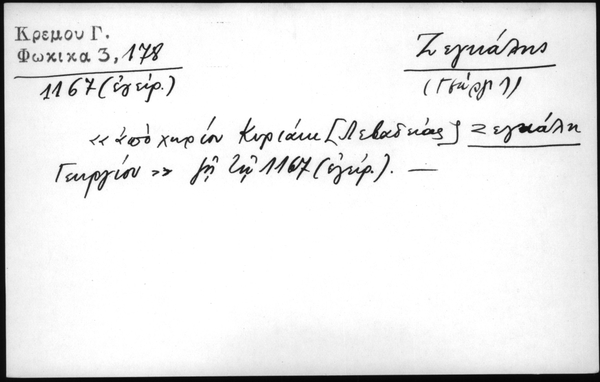 Κρεμου Γ.
Φωκικα 3, 178
1167 (ἐγείρ.)
Ζεγκάλης
(Γεώργι)
«ἀπὸ χωρίον Κυριάκι [Λεβαδείας] Ζεγκάλη
Γεωργίου» ζῇ τῷ 1167 (ἐγείρ.). —